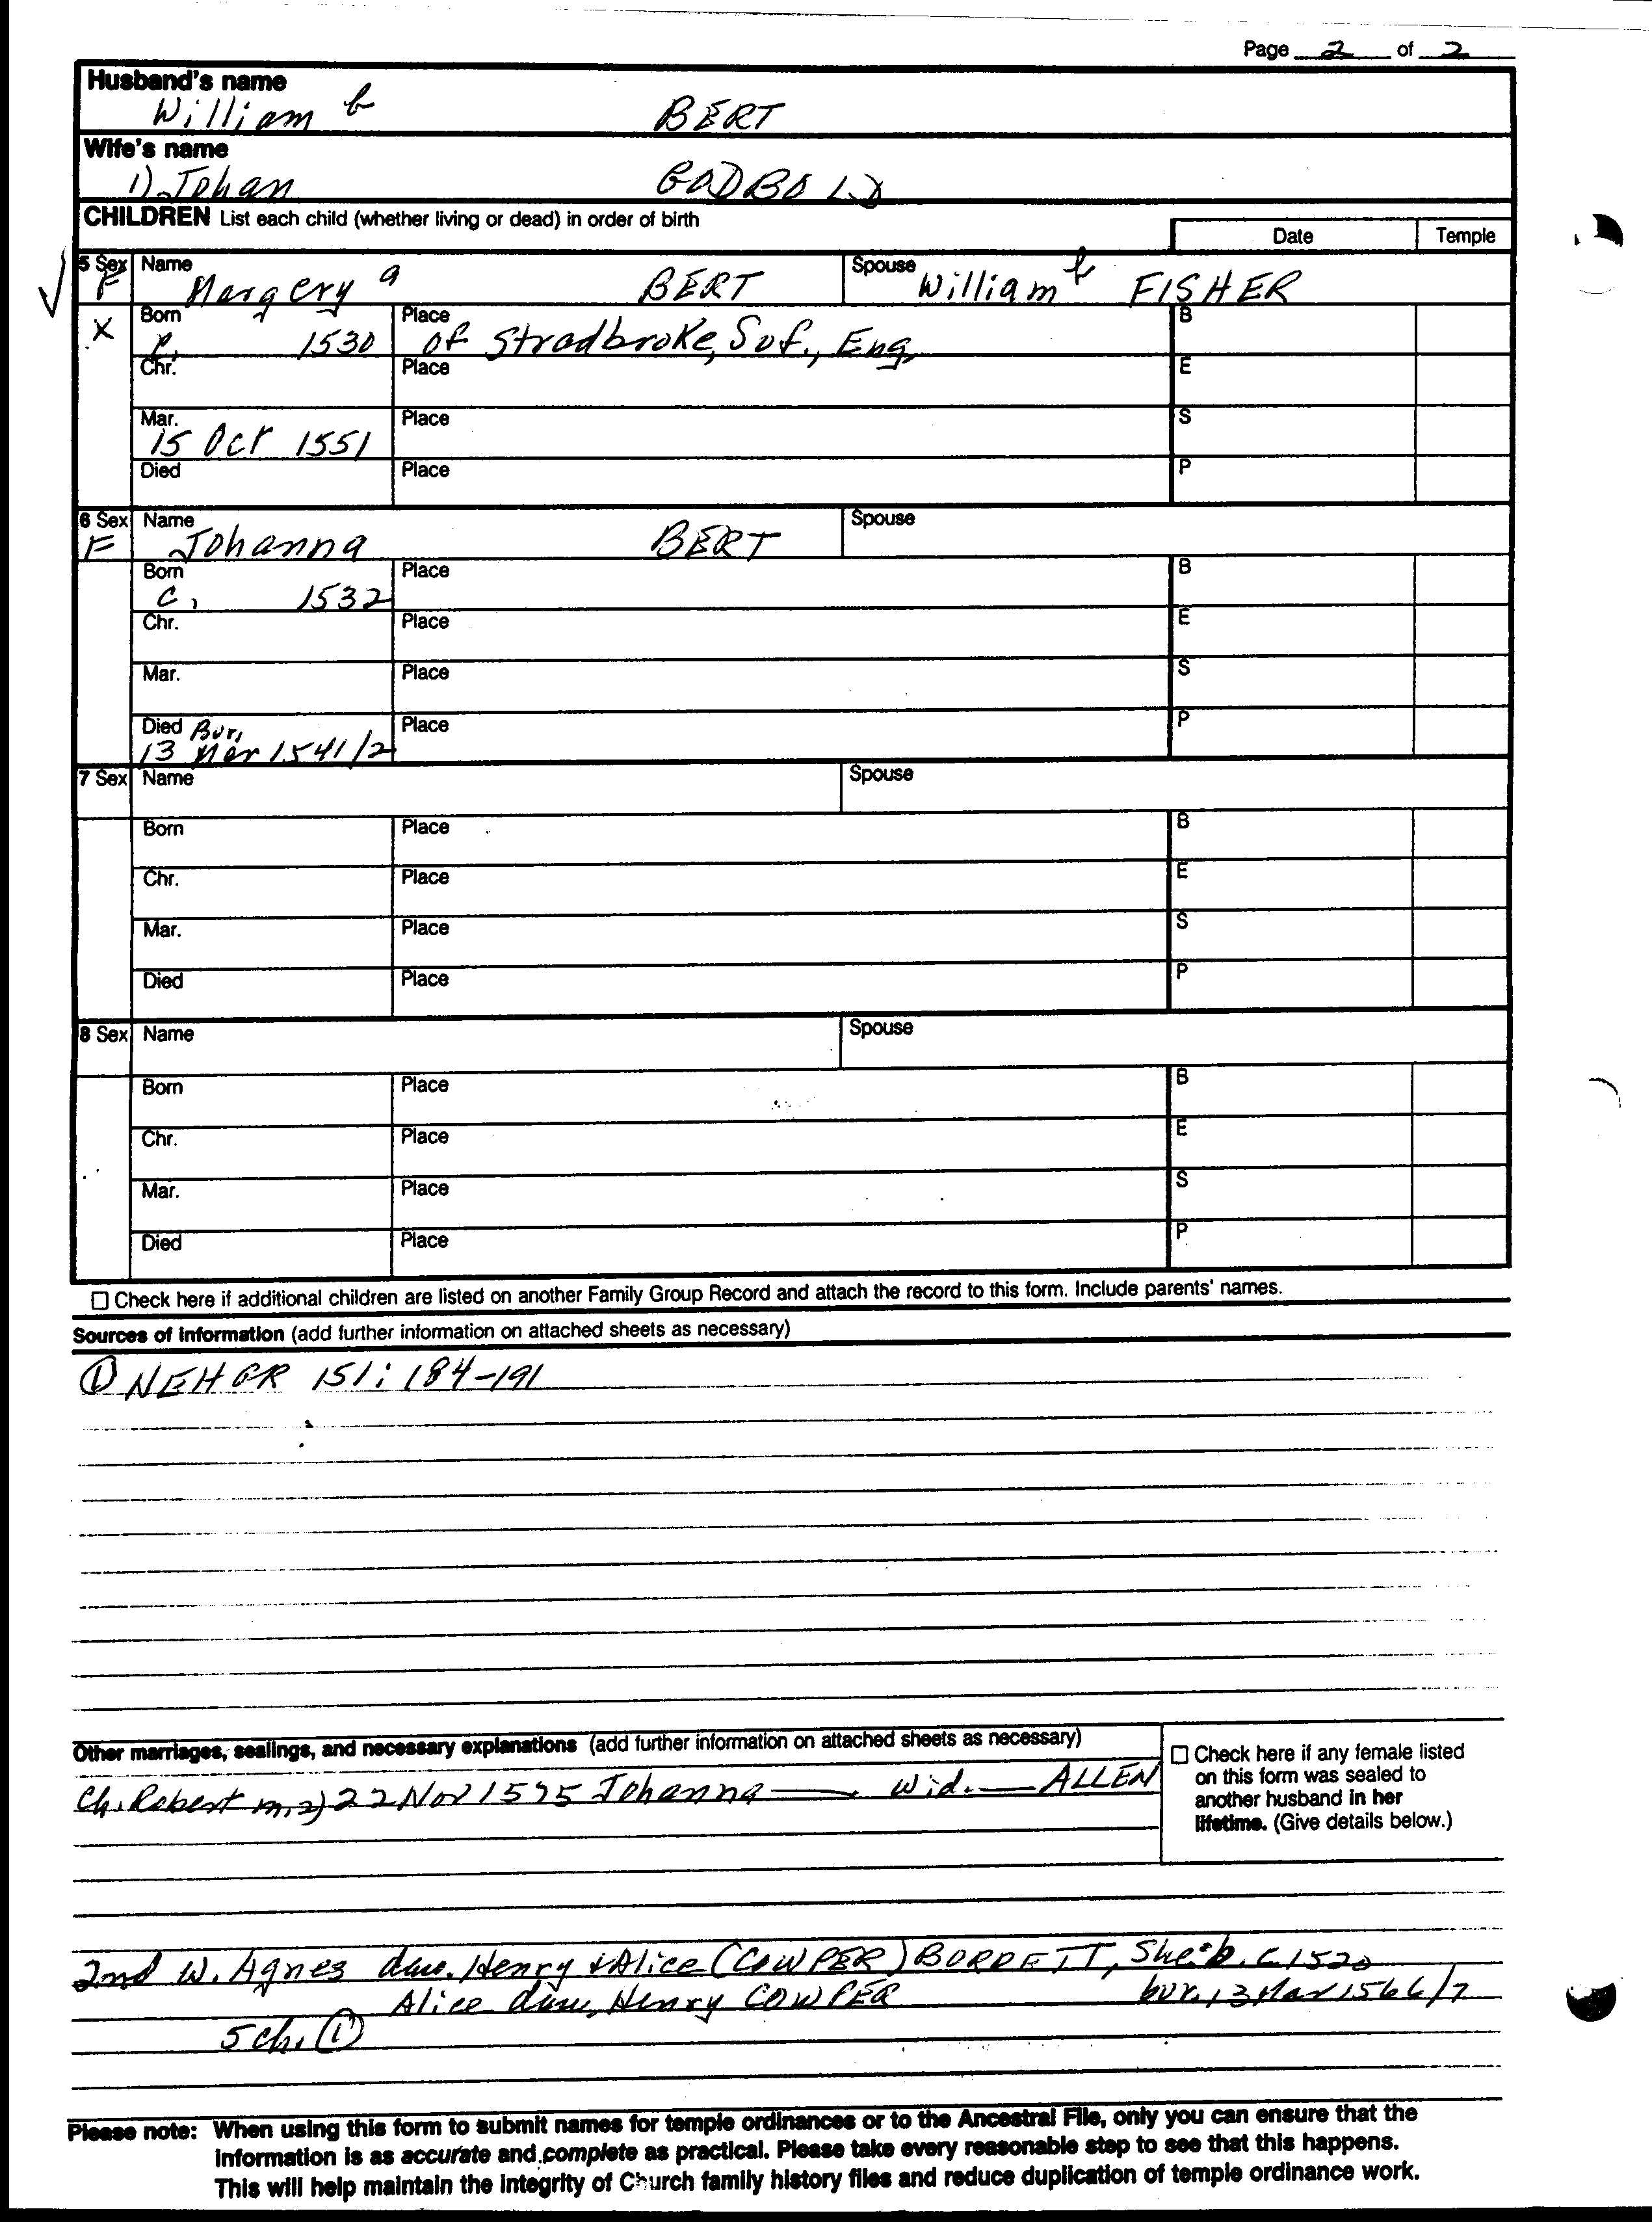 Page 2 of 2
Husband's name
William b BERT
Wife's name
1) Johan GODBOLD
CHILDREN List each child (whether living or dead) in order of birth
Date Temple
5 Sex Name Spouse
F Margery a BERT William b FISHER
X Born Place B
c. 1530 of Stradbroke, Suf., Eng.
Chr. Place E
Mar. Place S
15 Oct 1551
Died Place P
6 Sex Name Spouse
F Johanna BERT
Born Place B
c, 1532
Chr. Place E
Mar. Place S
Died Bur, Place P
13 Mar 1541/2
7 Sex Name Spouse
Born Place B
Chr. Place E
Mar. Place S
Died Place P
8 Sex Name Spouse
Born Place B
Chr. Place E
Mar. Place S
Died Place P
Check here if additional children are listed on another Family Group Record and attach the record to this form. Include parents' names.
Sources of information (add further information on attached sheets as necessary)
① NEHGR 151: 184-191
Other marriages, sealings, and necessary explanations (add further information on attached sheets as necessary)
Ch. Robert m, 2) 22 Nov 1575 Johanna —— wid. — ALLEN
Check here if any female listed
on this form was sealed to
another husband in her
lifetime. (Give details below.)
2nd W. Agnes dau. Henry & Alice (COWPER) BORRETT, She: b. c 1520
Alice dau, Henry COWPER bur. 13 Mar 1566/7
5 ch. ①
Please note: When using this form to submit names for temple ordinances or to the Ancestral File, only you can ensure that the
information is as accurate and complete as practical. Please take every reasonable step to see that this happens.
This will help maintain the integrity of Church family history files and reduce duplication of temple ordinance work.